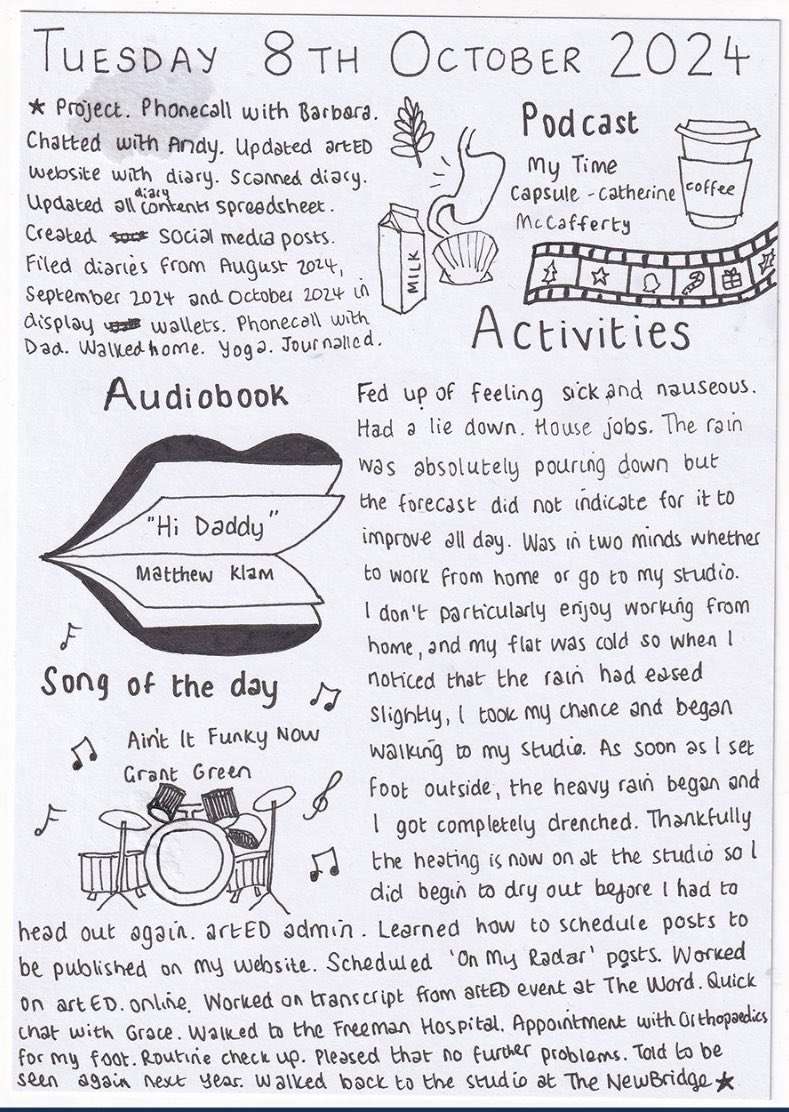 TUESDAY 8TH OCTOBER 2024
★ Project. Phonecall with Barbara.
Chatted with Andy. Updated artED
website with diary. Scanned diary.
Updated all diary contents spreadsheet.
Created social media posts.
Filed diaries from August 2024,
September 2024 and October 2024 in
display wallets. Phonecall with
Dad. Walked home. Yoga. Journalled.
MILK
Podcast
My Time
Capsule - Catherine
McCafferty
coffee
Activities
Audiobook
"Hi Daddy"
Matthew Klam
Song of the day
Ain't It Funky Now
Grant Green
Fed up of feeling sick and nauseous.
Had a lie down. House jobs. The rain
was absolutely pouring down but
the forecast did not indicate for it to
improve all day. Was in two minds whether
to work from home or go to my studio.
I don't particularly enjoy working from
home, and my flat was cold so when I
noticed that the rain had eased
slightly, I took my chance and began
walking to my studio. As soon as I set
foot outside, the heavy rain began and
I got completely drenched. Thankfully
the heating is now on at the studio so I
did begin to dry out before I had to
head out again. artED admin. Learned how to schedule posts to
be published on my website. Scheduled 'On My Radar' posts. Worked
on artED.online. Worked on transcript from artED event at The Word. Quick
chat with Grace. Walked to the Freeman Hospital. Appointment with Orthopaedics
for my foot. Routine check up. Pleased that no further problems. Told to be
seen again next year. Walked back to the studio at The NewBridge ★